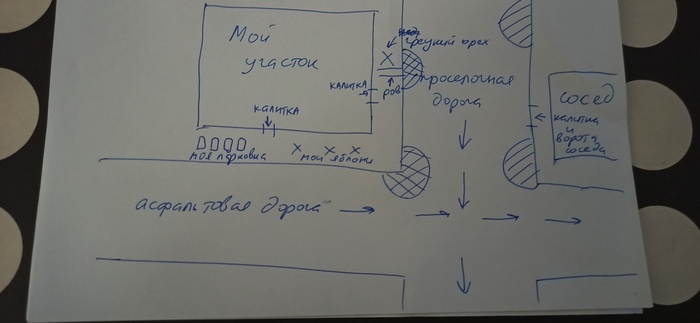 Мой
участок
грецкий орех
ров
калитка
калитка
проселочная
дорога
сосед
калитка
и
ворота
соседа
моя парковка
мои яблони
асфальтовая дорога